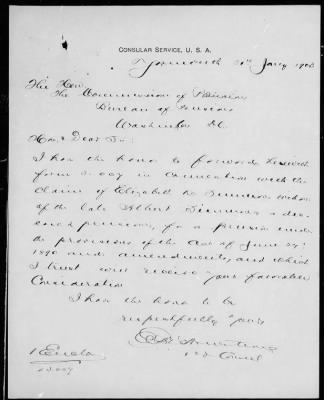 CONSULAR SERVICE, U. S. A.
Yarmouth 31st Jany 190
The Hon
The Commissioner of Pensions
Bureau of Pensions
Washington D.C.
Hon & Dear Sir:
I have the honor to forward herewith
form 3-007 in connection with the
claim of Elizabeth widow
of the late Albert a dec-
eased pensioner, for a pension under
the provisions of the Act of June 27th
1890 and amendments, and which
I trust will receive your favorable
Consideration
I have the honor to be
respectfully yours
Consul
1 Enclo